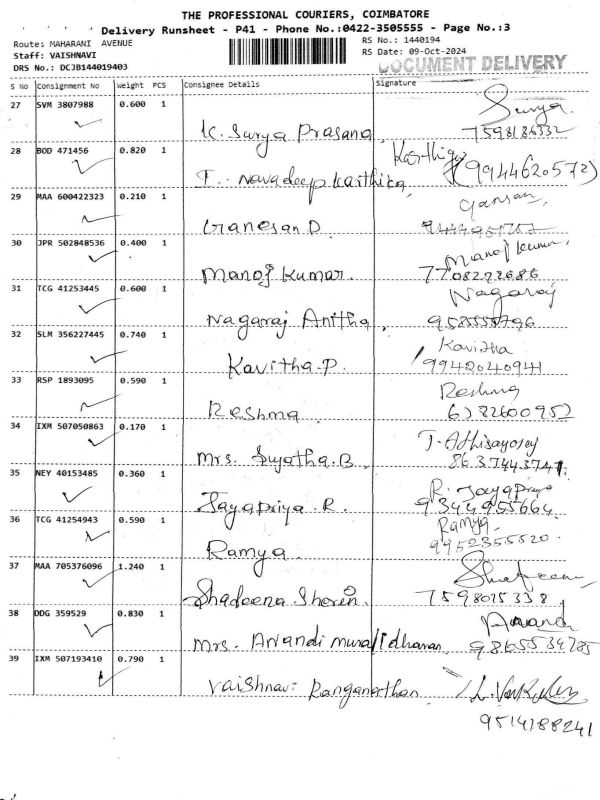 THE PROFESSIONAL COURIERS, COIMBATORE
Delivery Runsheet - P41 - Phone No.:0422-3505555 - Page No.:3
Route: MAHARANI AVENUE
RS No.: 1440194
Staff: VAISHNAVI
RS Date: 09-Oct-2024
DRS No.: DCJB144019403
DOCUMENT DELIVERY
S No Consignment No Weight PCS Consignee Details Signature
27 SVM 3807988 0.600 1 Surya
K. Surya Prasana 7598186332
28 BOD 471456 0.820 1 Karthiga
T. Navadeep Karthika (9944620572)
29 MAA 600422323 0.210 1 Gansan
Ganesan D
30 JPR 502848536 0.400 1 Manoj Kumar
Manoj Kumar. 7708272686
31 TCG 41253445 0.600 1 Nagaraj
Nagaraj Anitha 9585555796
32 SLM 356227445 0.740 1 Kavitha
Kavitha.P 9942040941
33 RSP 1893095 0.590 1 Reshma
Reshma 6382600952
34 IXM 507050863 0.170 1
Mrs. Sujatha.B 8637443747
35 NEY 40153485 0.360 1 R. Jayapriya
Jayapriya.R. 9344955664
36 TCG 41254943 0.590 1 Ramya
Ramya. 9952355520
37 MAA 705376096 1.240 1
Shadeena Sherin. 7598015338
38 DDG 359529 0.830 1 Anandi
Mrs. Anandi muralidharan 9865534785
39 IXM 507193410 0.790 1
Vaishnavi Ranganathan
9514188241